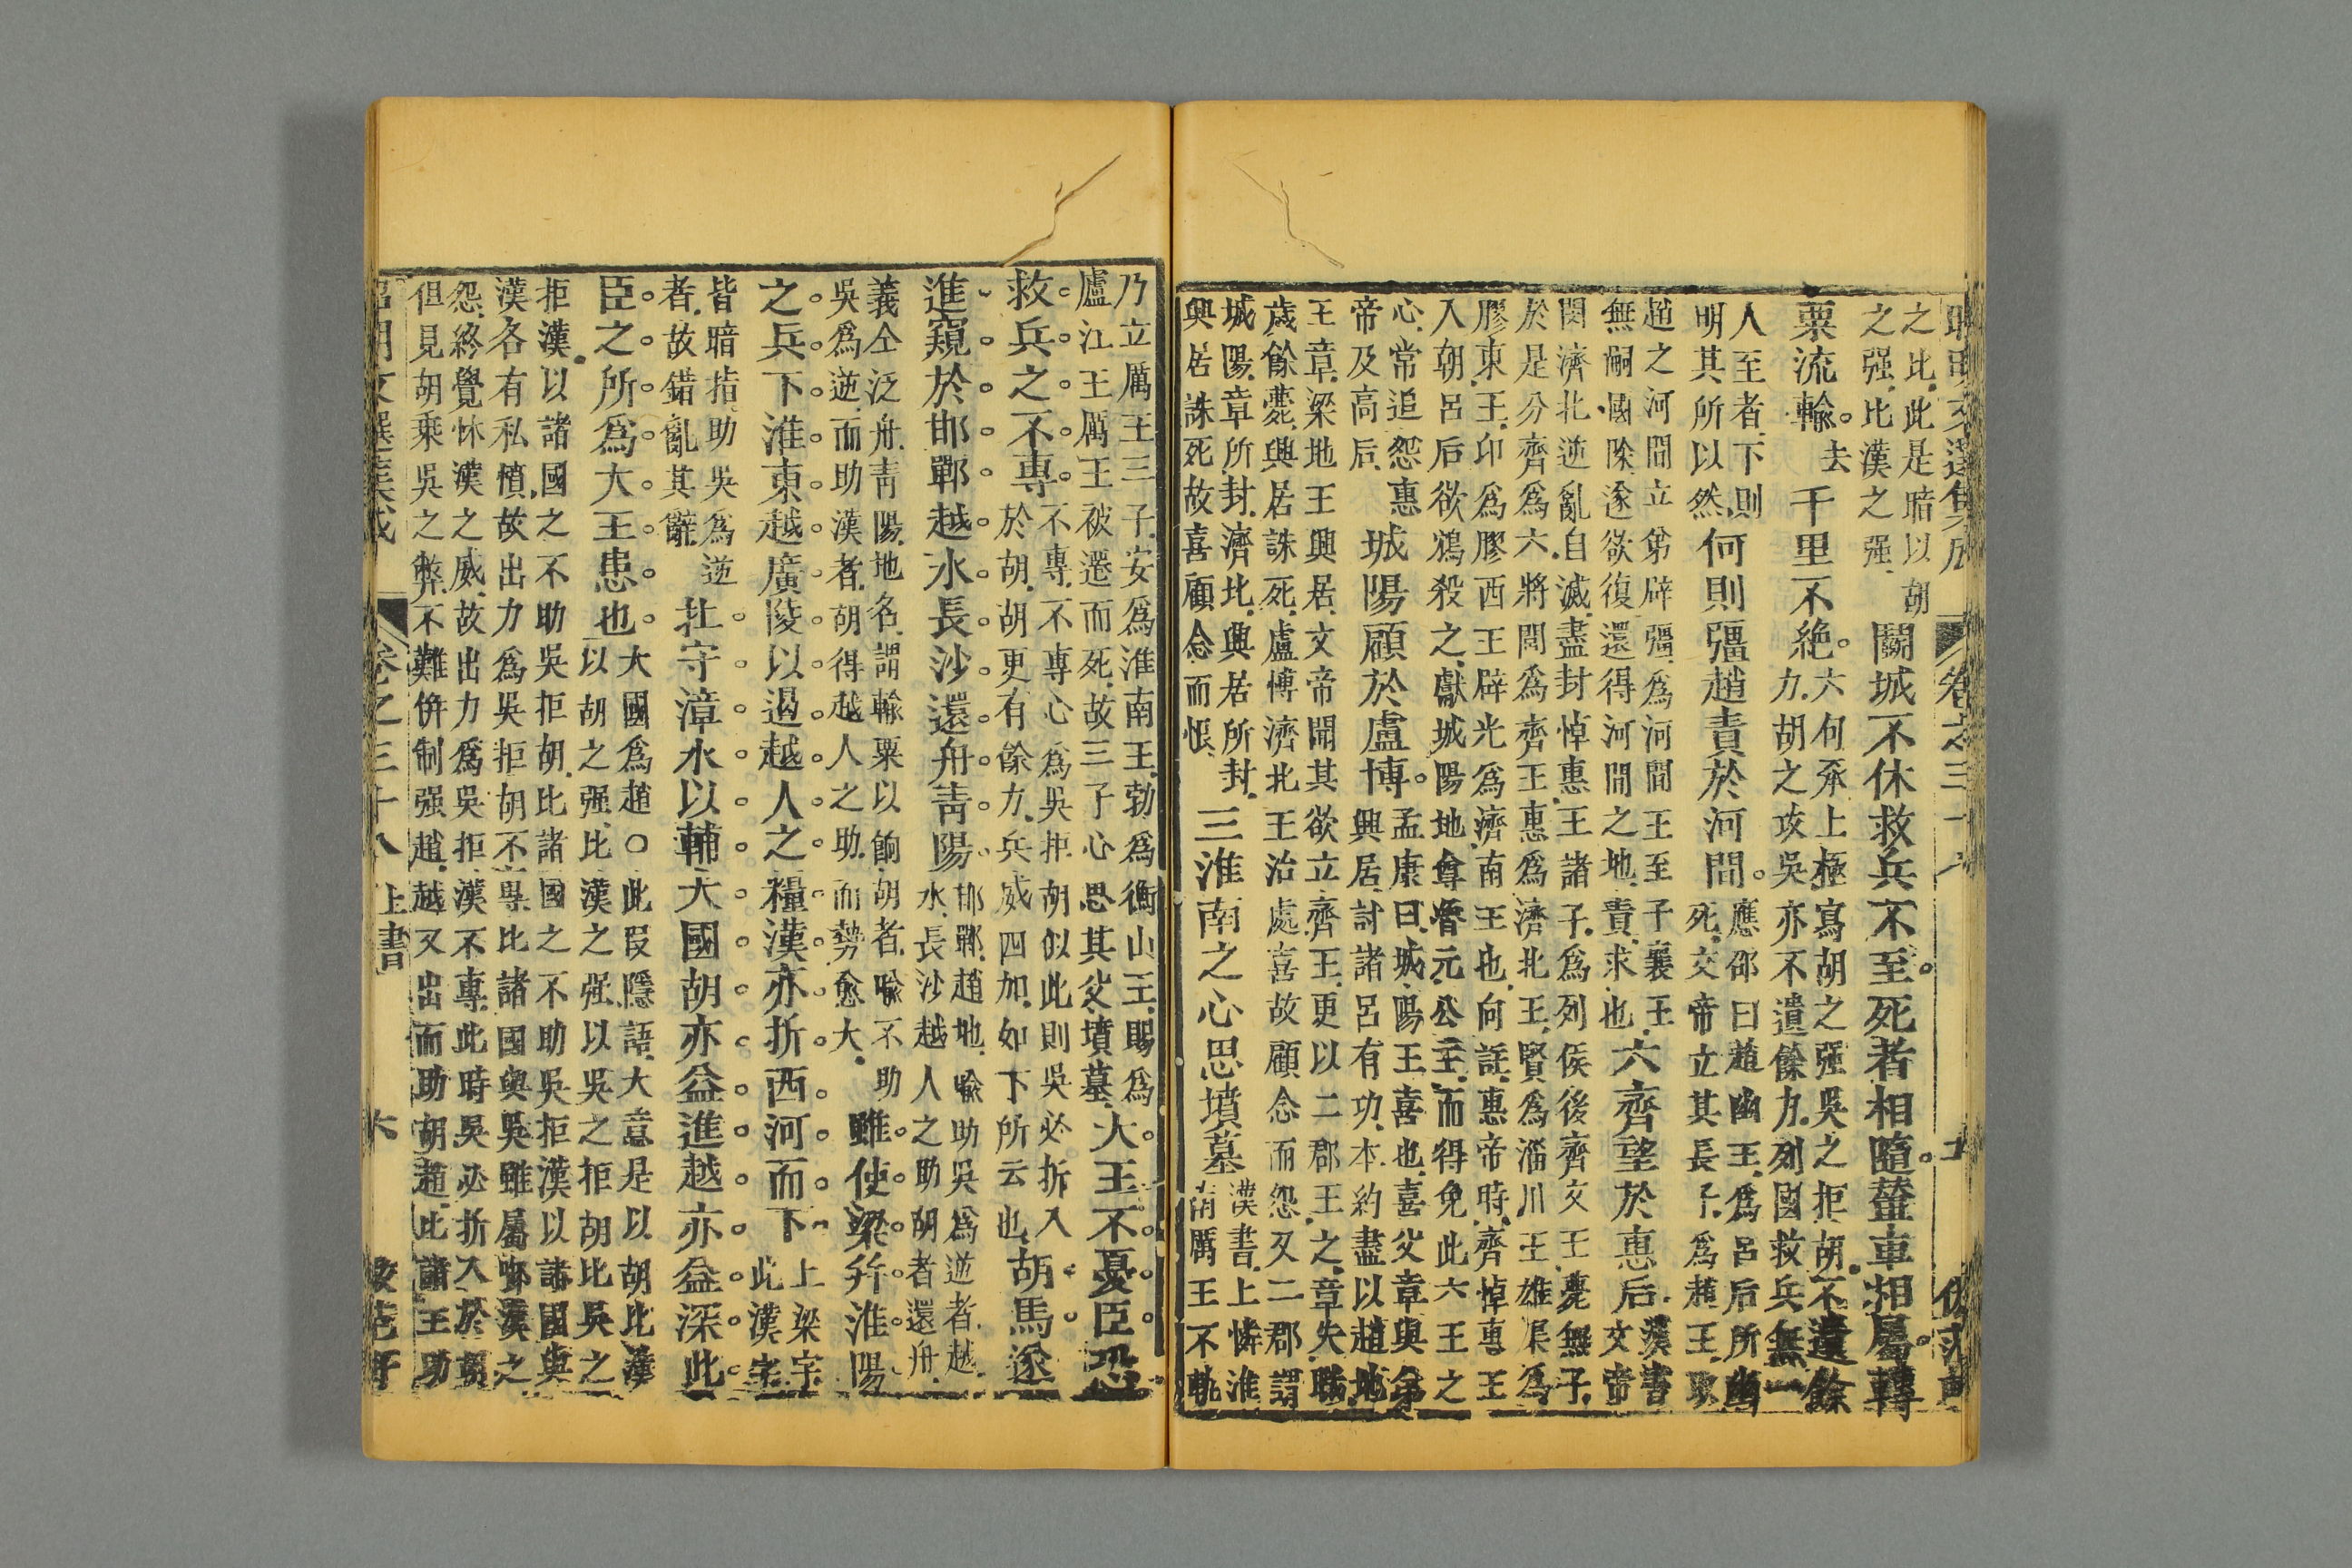 昭明文選集成 卷之三十八
之比此是暗以胡
之强比漢之强
關城不休救兵不至死者相隨輦車相屬轉
粟流輸去千里不絶
六句承上極寫胡之强吳之拒胡不遺餘
力胡之攻吳亦不遺餘力列國救兵無一
人至者下則
明其所以然
何則彊趙責於河間
應邵曰趙幽王爲呂后所幽
死文帝立其長子爲趙王取
趙之河間立弟辟彊爲河間王至子襄王
無嗣國除遂欲復還得河間之地責求也
六齊望於惠后
漢書文帝
閔濟北逆亂自滅盡封悼惠王諸子爲列侯後齊文王薨無子
於是分齊爲六將閭爲齊王惠爲濟北王賢爲淄川王雄渠爲
膠東王卬爲膠西王辟光爲濟南王也向註惠帝時齊悼惠王
入朝呂后欲鴆殺之獻城陽地尊魯元公主而得免此六王之
心常追怨惠
帝及高后
城陽顧於盧博
孟康曰城陽王喜也喜父章與弟
興居討諸呂有功本約盡以趙地
王章梁地王興居文帝聞其欲立齊王更以二郡王之章失職
歲餘薨興居誅死盧博濟北王治處喜故顧念而怨又二郡謂
城陽章所封濟北興居所封
興居誅死故喜顧念而恨
三淮南之心思墳墓
漢書上憐淮
南厲王不軌
乃立厲王三子安爲淮南王勃爲衡山王賜爲
廬江王厲王被遷而死故三子心思其父墳墓
大王不憂臣恐
救兵之不專
不專不專心爲吳拒胡似此則吳必折入
於胡胡更有餘力兵威四加如下所云也
胡馬遂
進窺於邯鄲越水長沙還舟青陽
邯鄲趙地喻助吳爲逆者越
水長沙越人之助胡者還舟
義仝泛舟青陽地名謂輸粟以餉胡者喻不助
吳爲逆而助漢者胡得越人之助而勢愈大
雖使梁幷淮陽
之兵下淮東越廣陵以遏越人之糧漢亦折西河而下
上梁字
此漢字
皆暗指助吳爲逆
者故錯亂其辭
北守漳水以輔大國胡亦益進越亦益深此
臣之所爲大王患也
大國爲趙〇此叚隱語大意是以胡比漢
以胡之强比漢之强以吳之拒胡比吳之
拒漢以諸國之不助吳拒胡比諸國之不助吳拒漢以諸國與
漢各有私憤故出力爲吳拒胡不專比諸國與吳雖屬
怨終覺怵漢之威故出力爲吳拒漢不專此時吳必折入於胡
但見胡乘吳之弊不難倂制强趙越又出而助胡趙比諸王助
昭明文選集成 卷之三十八 上書